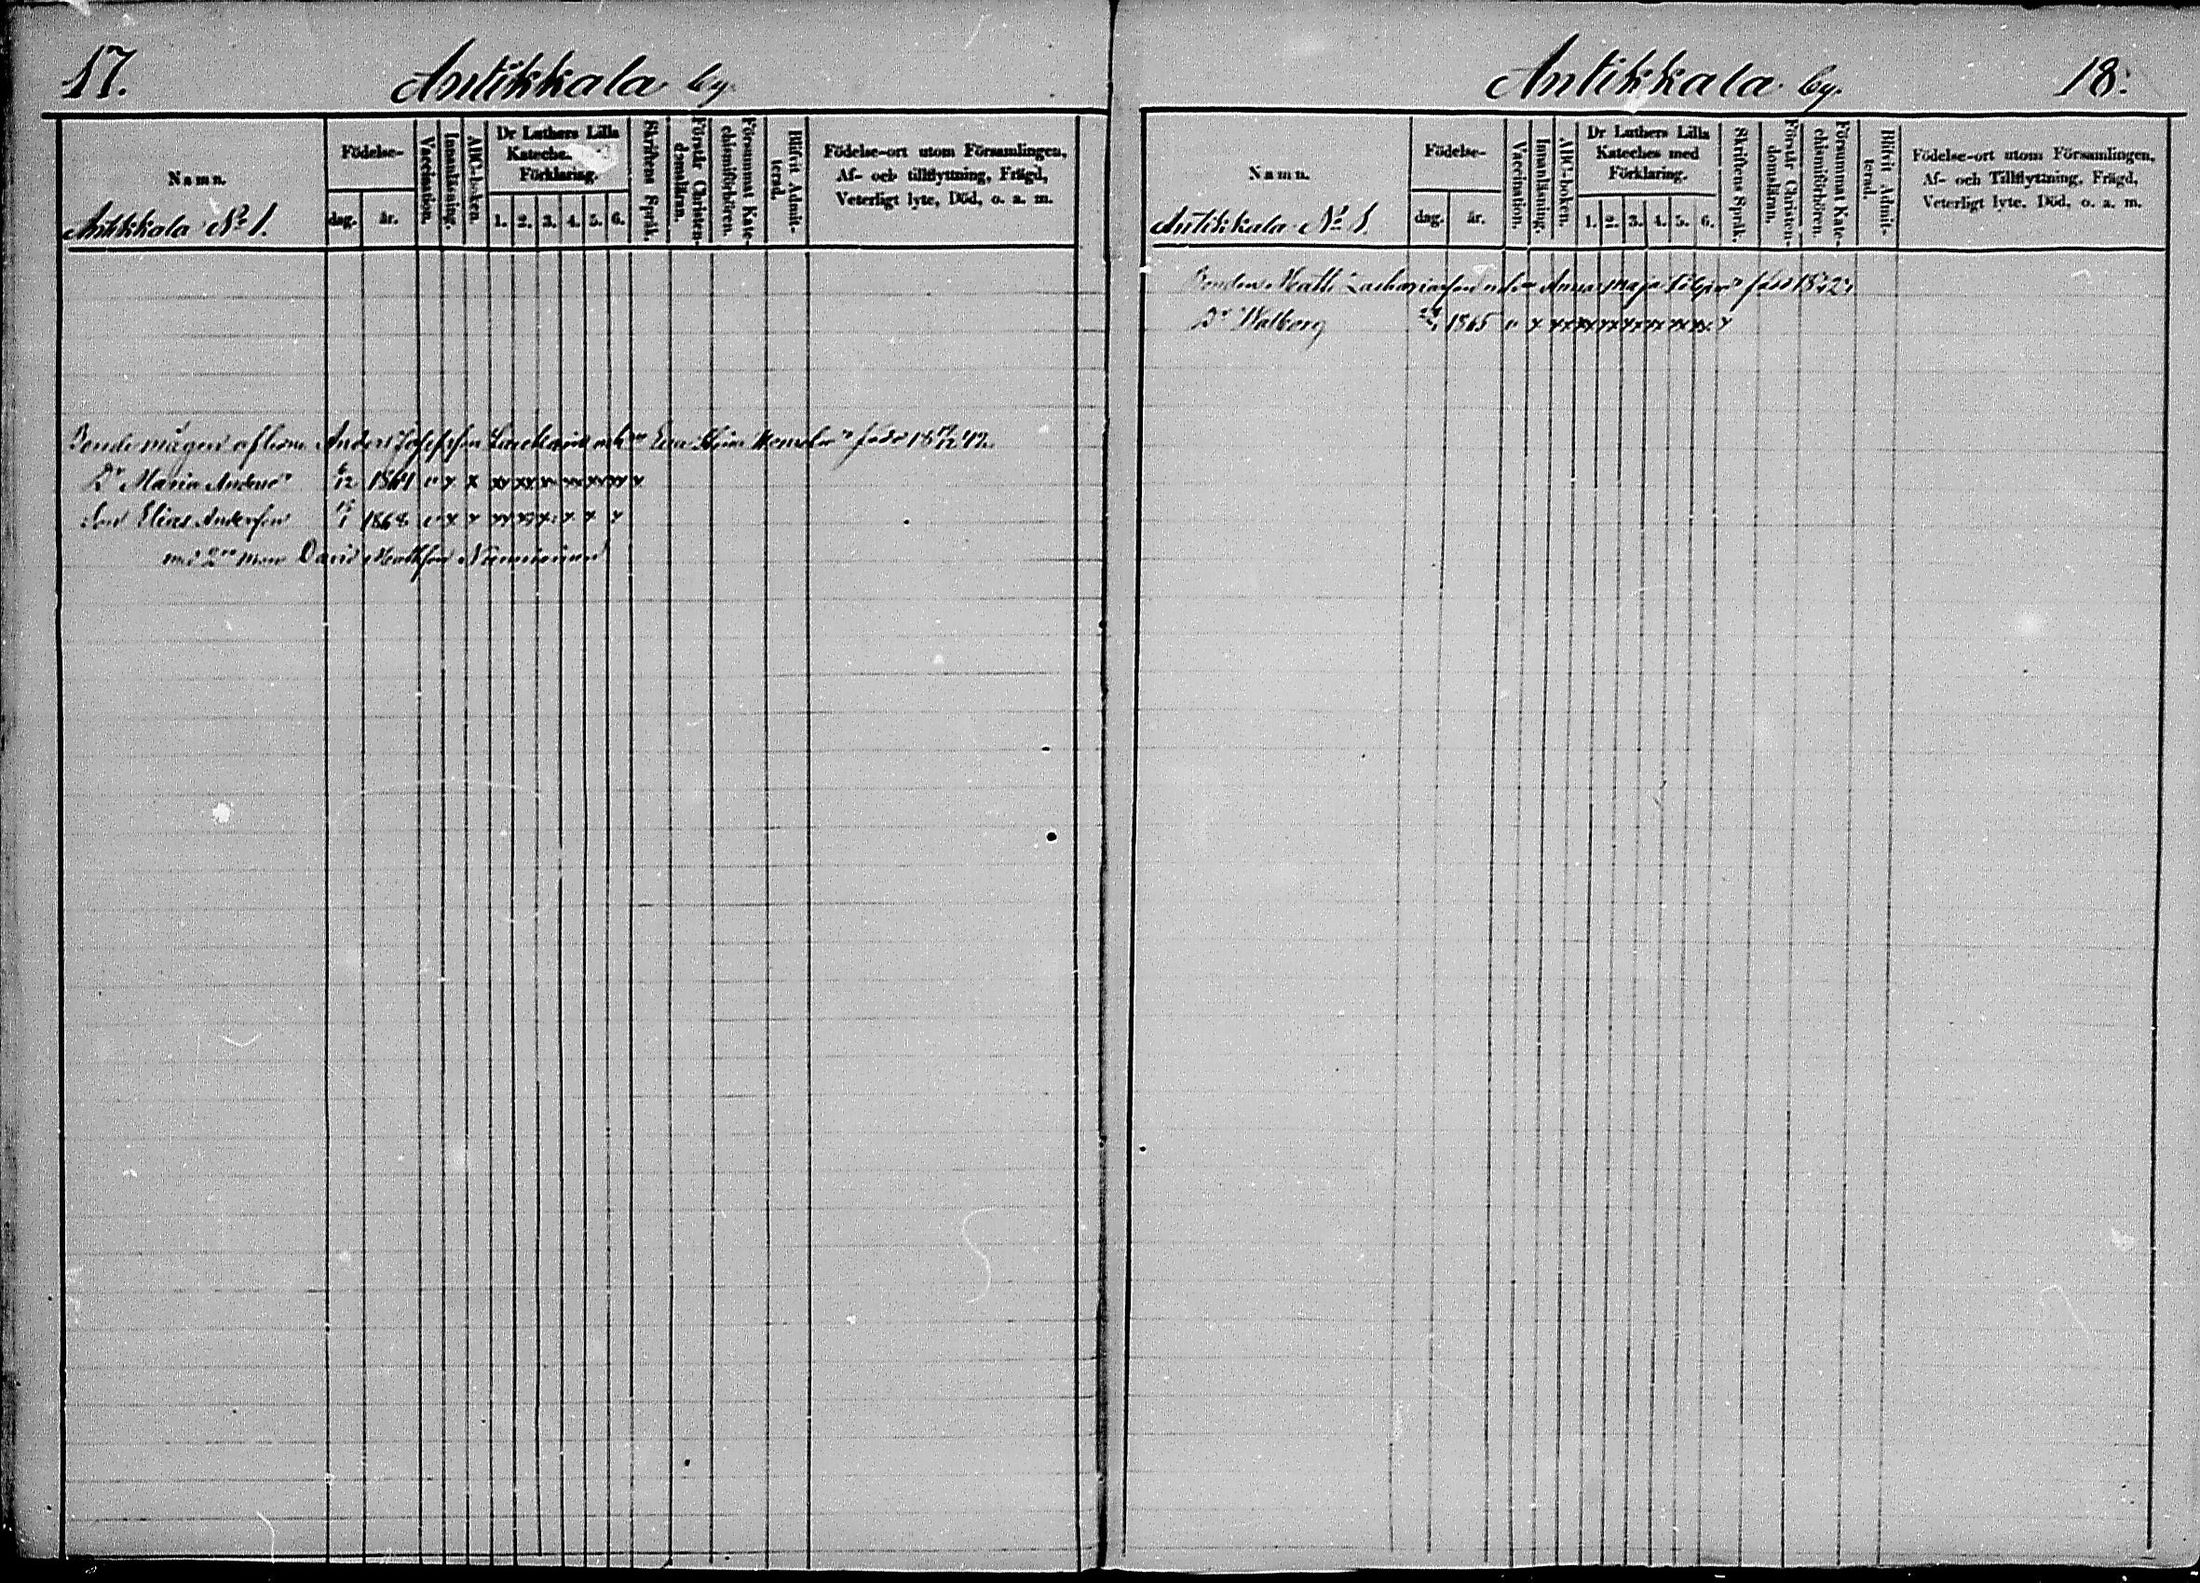 17.
Antikkala by.
Namn.
Födelse-
dag.
år.
Vaccination.
Innanläsning.
ABC-boken.
Dr Luthers Lilla
Förklaring.
1. 2. 3. 4. 5. 6.
Skriftens Språk.
Förstår Christen-
domsläran.
Försummat Kate-
chismiförhören.
Blifvit Admit-
terad.
Födelse-ort utom Församlingen,
Af- och tillflyttning, Frägd,
Veterligt lyte, Död, o. a. m.
Antikkala No 1.
Bondemågen aflidne Anders Josefsson och Eva född
Dr Maria Andersdr 6/12 1861 v x x xx xx x xx xx xx x
Son Elias Andersson 1868 v x x xx xx x x x x
med 2dra man David Mattsson
Antikkala by.
18.
Namn.
Födelse-
dag.
år.
Vaccination.
Innanläsning.
ABC-boken.
Dr Luthers Lilla
Kateches med
Förklaring.
1. 2. 3. 4. 5. 6.
Skriftens Språk.
Förstår Christen-
domsläran.
Försummat Kate-
chismiförhören.
Blifvit Admit-
terad.
Födelse-ort utom Församlingen,
Af- och Tillflyttning, Frägd,
Veterligt lyte, Död, o. a. m.
Antikkala No 1.
Bonden Matts Zachariasson och Anna Maja född
Dr Walborg 1865 v x xx xx xx xx xx xx xx x